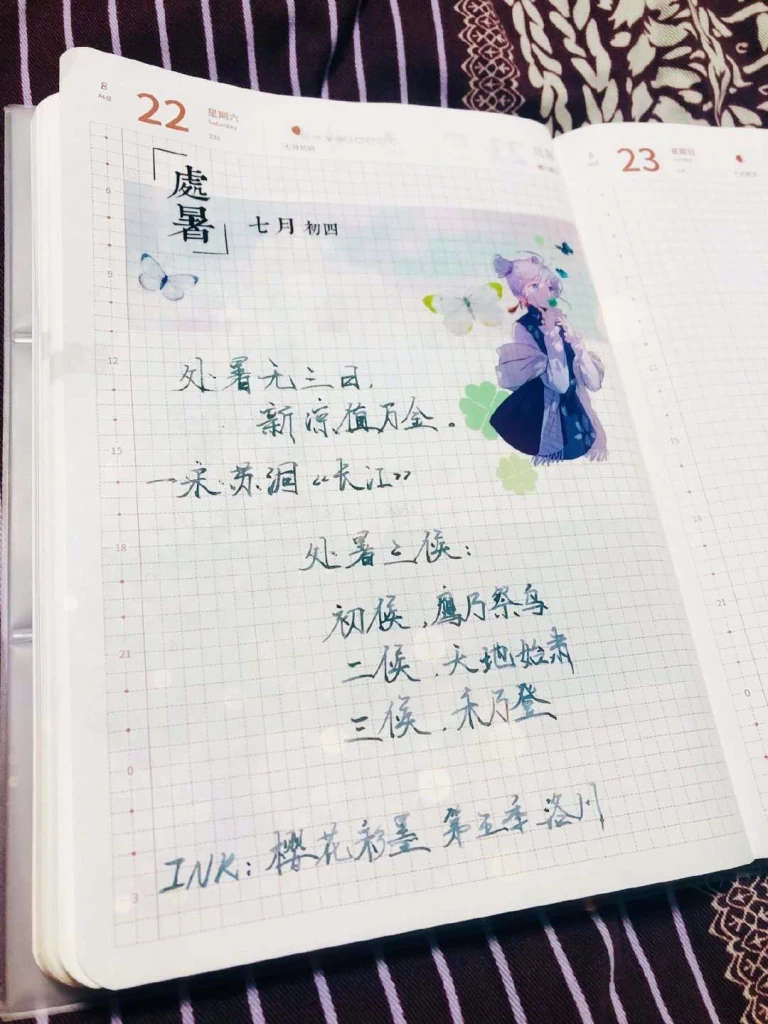 8
AUG
22
星期六
Saturday
七月初四
23
星期日
「處暑」
七月初四
处暑无三日,
新凉值万金。
一宋·苏泂《长江》
处暑之候:
初候,鹰乃祭鸟
二候,天地始肃
三候,禾乃登
INK:樱花彩墨 第五季 洛川
6
9
12
15
18
21
0
3
12
15
18
21
0